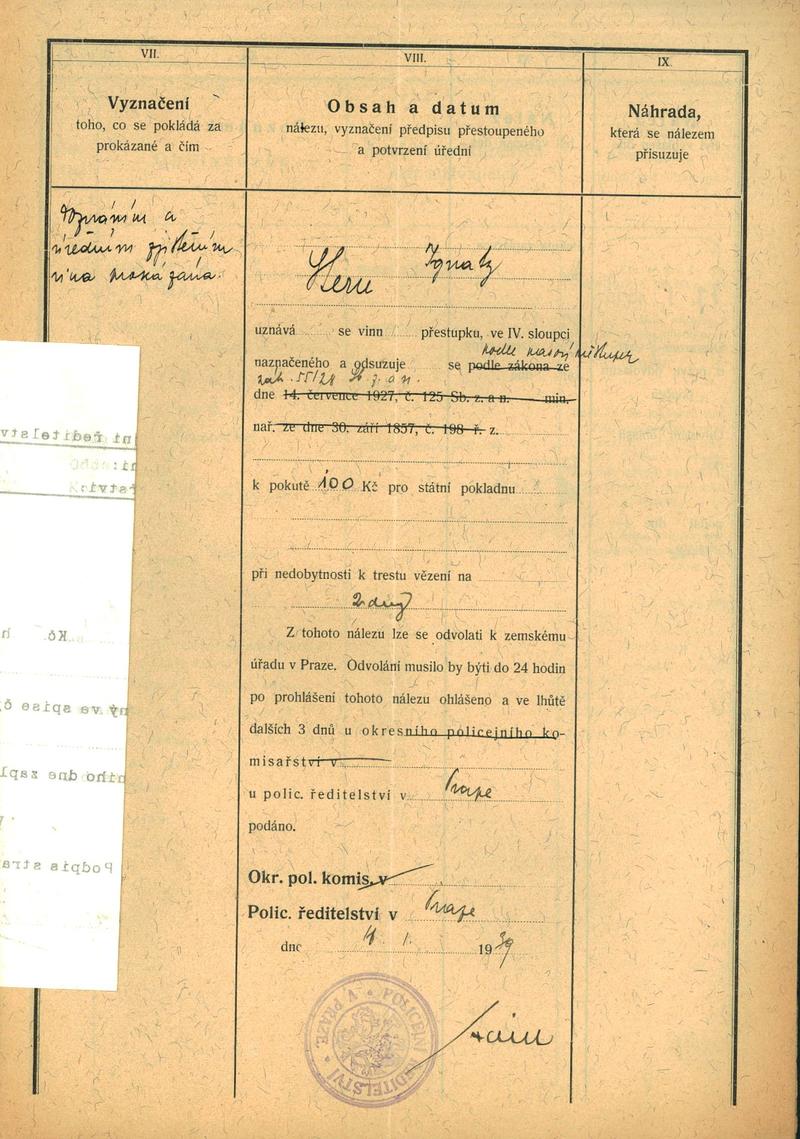 VII.
Vyznačení
toho, co se pokládá za
prokázané a čím
a
úředním zjištěním
vina prokázána.
VIII.
Obsah a datum
nálezu, vyznačení předpisu přestoupeného
a potvrzení úřední
IX
Náhrada,
která se nálezem
přisuzuje
Ignatz
uznává se vinn přestupku, ve IV. sloupci
podle
naznačeného a odsuzuje se podle zákona ze
zák. Sb. z. a n.
dne 14. července 1927, č. 125 Sb. z. a n. min.
nař. ze dne 30. září 1857, č. 198 ř. z.
k pokutě 100 Kč pro státní pokladnu
při nedobytnosti k trestu vězení na
2 dny
Z tohoto nálezu lze se odvolati k zemskému
úřadu v Praze. Odvolání musilo by býti do 24 hodin
po prohlášení tohoto nálezu ohlášeno a ve lhůtě
dalších 3 dnů u okresního policejního ko-
misařství v
u polic. ředitelství v Praze
podáno.
Okr. pol. komis. v
Polic. ředitelství v Praze
dne 4 1. 1939
POLICEJNÍ ŘEDITELSTVÍ V PRAZE